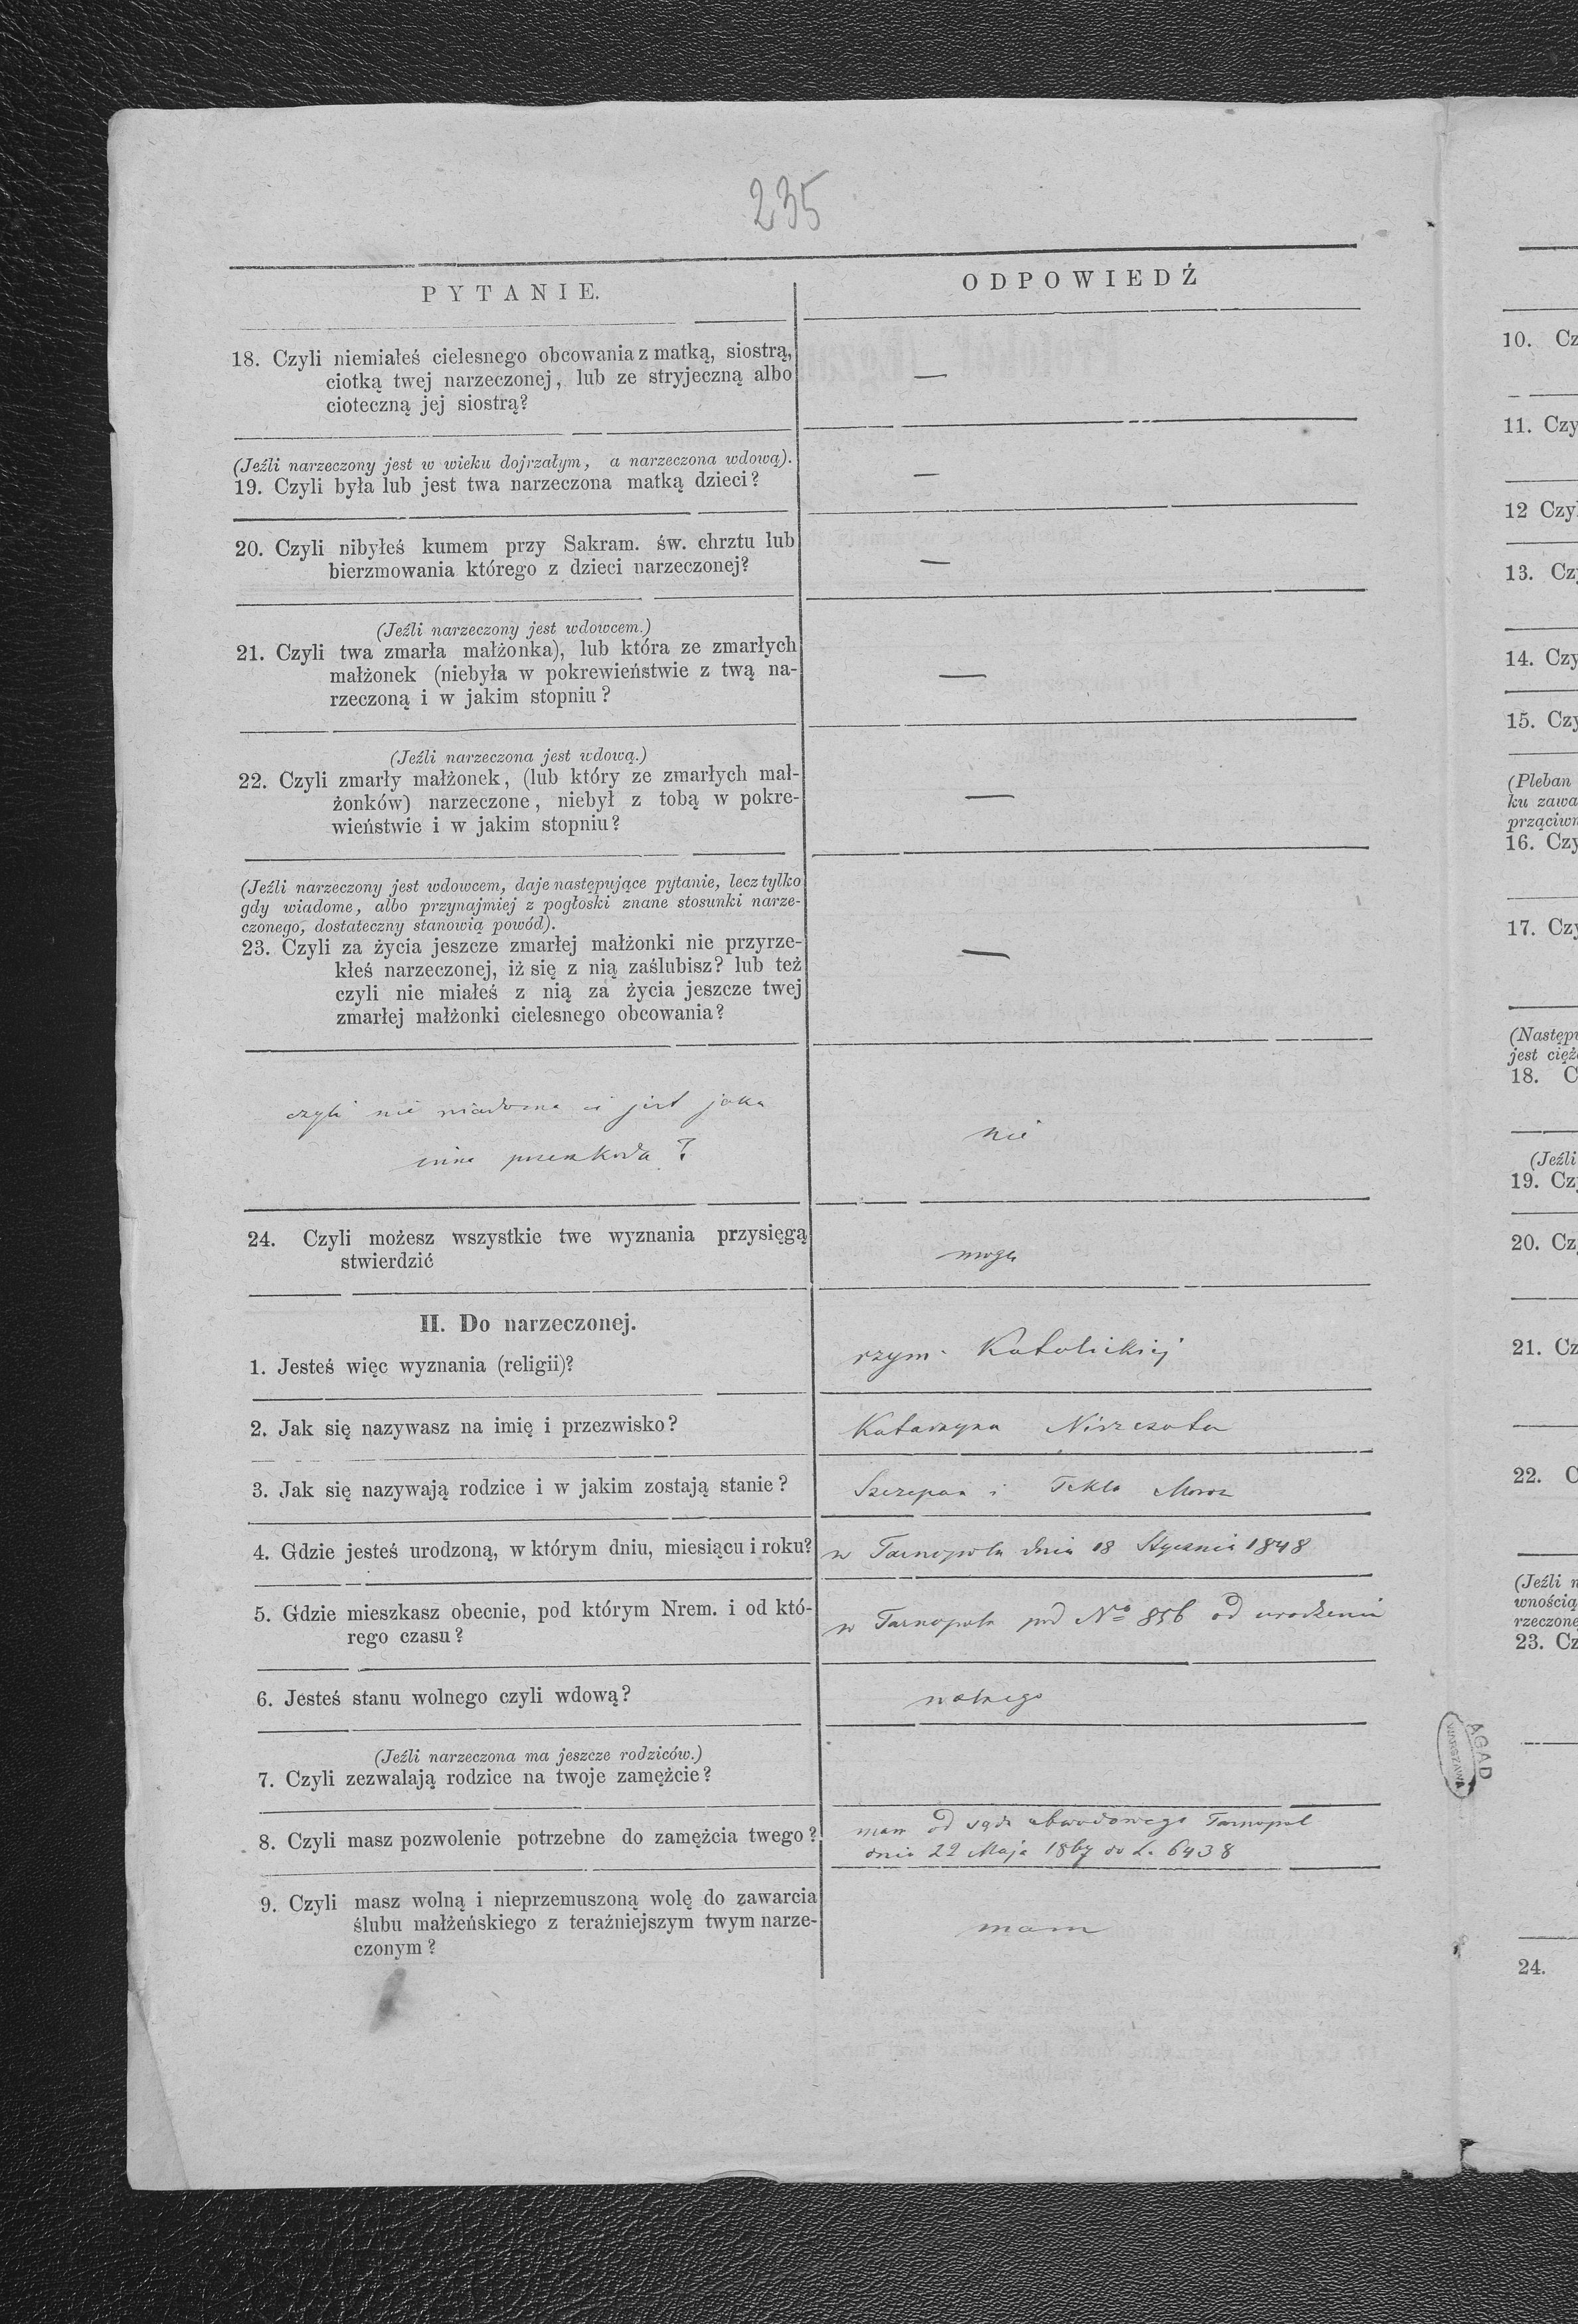 235
PYTANIE.
ODPOWIEDŹ
18. Czyli niemiałeś cielesnego obcowania z matką, siostrą,
ciotką twej narzeczonej, lub ze stryjeczną albo
cioteczną jej siostrą?
—
(Jeźli narzeczony jest w wieku dojrzałym, a narzeczona wdową).
19. Czyli była lub jest twa narzeczona matką dzieci?
—
20. Czyli nibyłeś kumem przy Sakram. św. chrztu lub
bierzmowania którego z dzieci narzeczonej?
—
(Jeźli narzeczony jest wdowcem.)
21. Czyli twa zmarła małżonka), lub która ze zmarłych
małżonek (niebyła w pokrewieństwie z twą na-
rzeczoną i w jakim stopniu?
—
(Jeźli narzeczona jest wdową.)
22. Czyli zmarły małżonek, (lub który ze zmarłych mał-
żonków) narzeczone, niebył z tobą w pokre-
wieństwie i w jakim stopniu?
—
(Jeźli narzeczony jest wdowcem, daje następujące pytanie, lecz tylko
gdy wiadome, albo przynajmiej z pogłoski znane stosunki narze-
czonego, dostateczny stanowią powód).
23. Czyli za życia jeszcze zmarłej małżonki nie przyrze-
kłeś narzeczonej, iż się z nią zaślubisz? lub też
czyli nie miałeś z nią za życia jeszcze twej
zmarłej małżonki cielesnego obcowania?
—
czyli nie wiadoma ci jest jaka
inna przeszkoda?
nie
24. Czyli możesz wszystkie twe wyznania przysięgą
stwierdzić
mogę
II. Do narzeczonej.
1. Jesteś więc wyznania (religii)?
rzym. Katolickiej
2. Jak się nazywasz na imię i przezwisko?
Katarzyna
3. Jak się nazywają rodzice i w jakim zostają stanie?
Szczepan i Tekla Moroz
4. Gdzie jesteś urodzoną, w którym dniu, miesiącu i roku?
w Tarnopolu dnia 18 Stycznia 1848
5. Gdzie mieszkasz obecnie, pod którym Nrem. i od któ-
rego czasu?
w Tarnopolu pod No 856 od urodzenia
6. Jesteś stanu wolnego czyli wdową?
wolnego
(Jeźli narzeczona ma jeszcze rodziców.)
7. Czyli zezwalają rodzice na twoje zamężcie?
8. Czyli masz pozwolenie potrzebne do zamężcia twego?
mam od sądu obwodowego Tarnopol
dnia 22 Maja 1867 do L. 6438
9. Czyli masz wolną i nieprzemuszoną wolę do zawarcia
ślubu małżeńskiego z teraźniejszym twym narze-
czonym?
mam
AGAD
WARSZAWA
10. Cz
11. Czy
12 Czyl
13. Czy
14. Czy
15. Czy
(Pleban
ku zawa
prząciwn
16. Czy
17. Czy
(Następu
jest cięż
18. C
(Jeźli
19. Czy
20. Cz
21. Cz
22. C
(Jeźli n
wnością
rzeczone
23. Cz
24.